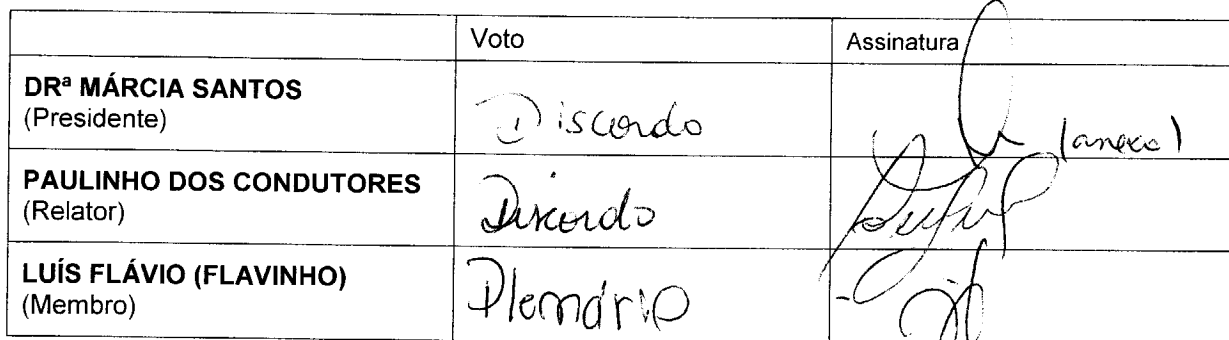 Voto Assinatura
DRª MÁRCIA SANTOS
(Presidente)
Discordo
(anexo)
PAULINHO DOS CONDUTORES
(Relator)
Discordo
LUÍS FLÁVIO (FLAVINHO)
(Membro)
Plenário